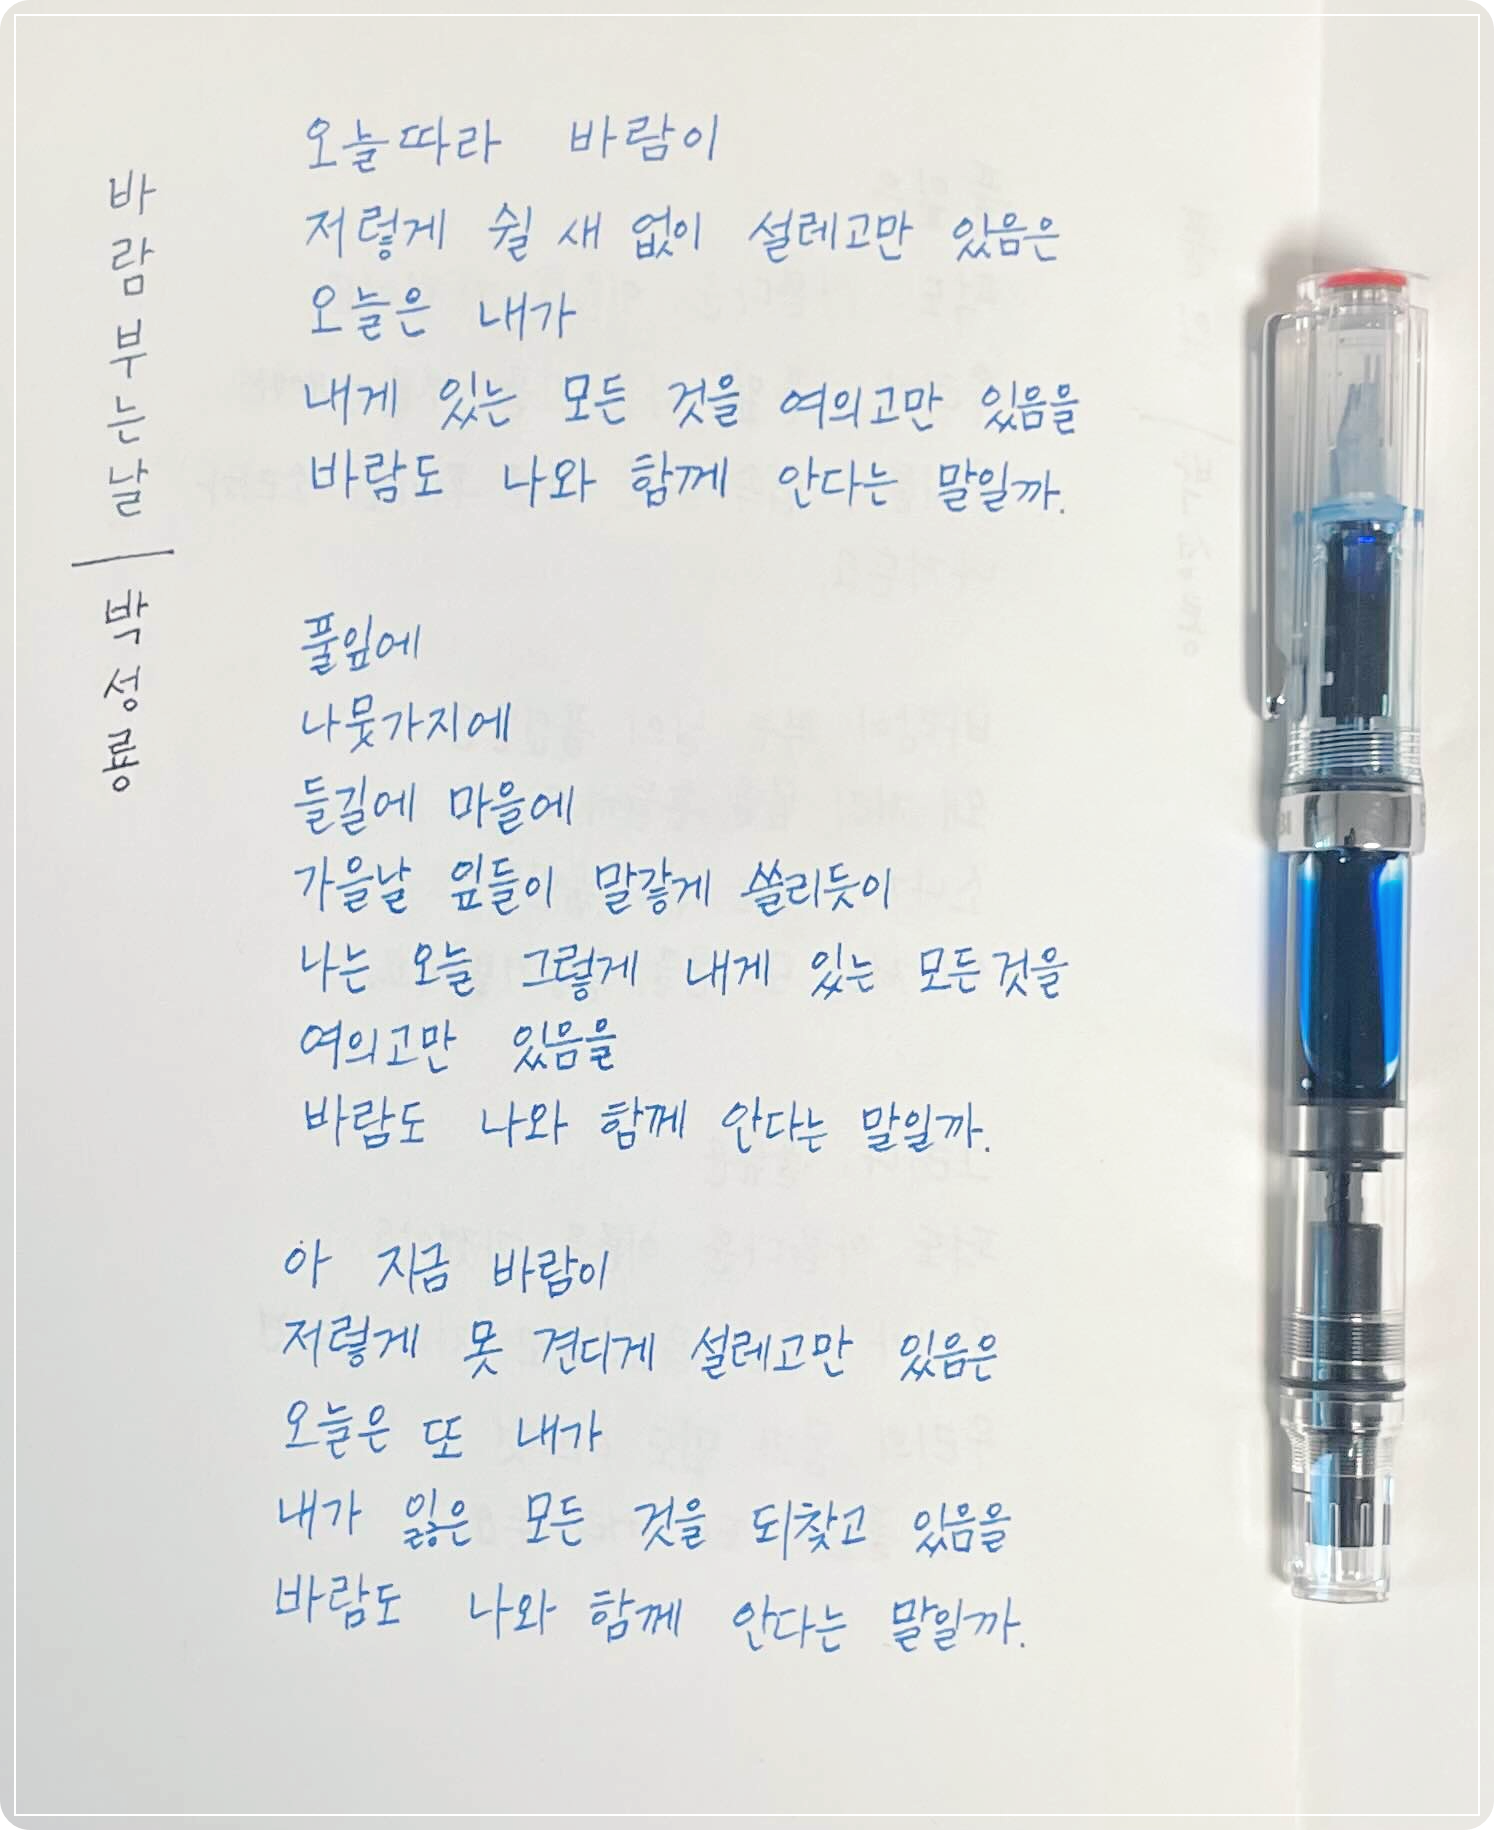 바람부는날 | 박성룡
오늘따라 바람이
저렇게 쉴 새 없이 설레고만 있음은
오늘은 내가
내게 있는 모든 것을 여의고만 있음을
바람도 나와 함께 안다는 말일까.
풀잎에
나뭇가지에
들길에 마을에
가을날 잎들이 말갛게 쓸리듯이
나는 오늘 그렇게 내게 있는 모든것을
여의고만 있음을
바람도 나와 함께 안다는 말일까.
아 지금 바람이
저렇게 못 견디게 설레고만 있음은
오늘은 또 내가
내가 잃은 모든 것을 되찾고 있음을
바람도 나와 함께 안다는 말일까.